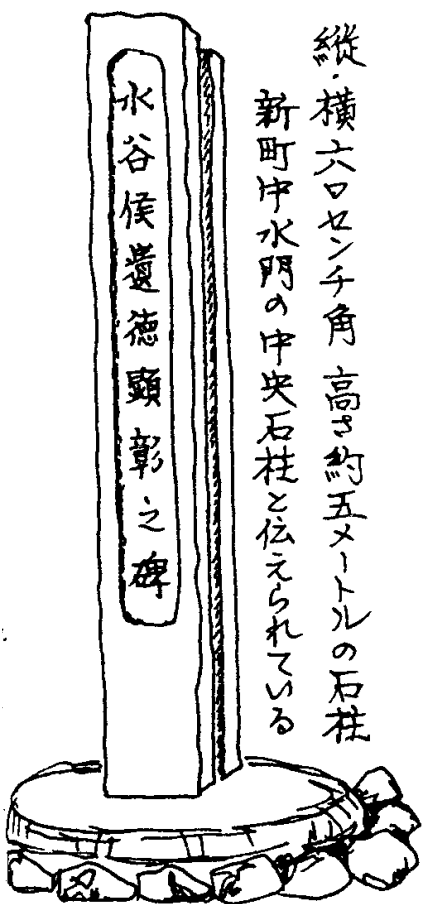 縦・横六〇センチ角 高さ約五メートルの石柱
新町中水門の中央石柱と伝えられている
水谷侯遺徳顕彰之碑